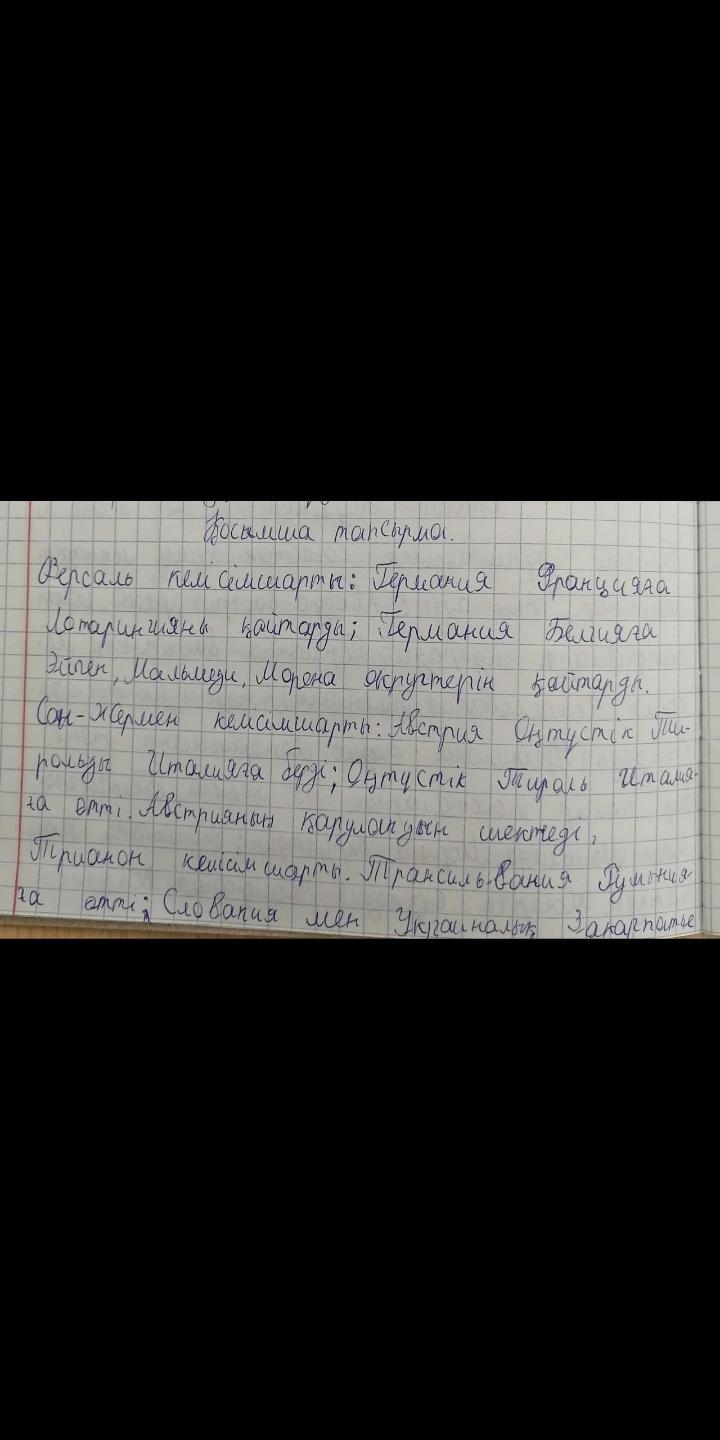 Қосымша тапсырма.
Версаль келісімшарты: Германия Францияға
Лотарингияны қайтарды; Германия Бельгияға
Эйпен, Мальмеди, Морена округтерін қайтарды.
Сен-Жермен келісімшарты: Австрия Оңтүстік Ти-
рольды Италияға берді; Оңтүстік Тироль Италия-
ға өтті. Австрияның қарулануын шектеді,
Трианон келісімшарты. Трансильвания Румыния-
ға өтті; Словакия мен Украиналық Закарпатье